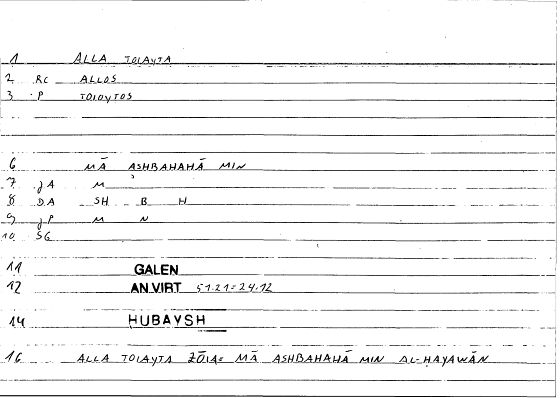 1 ALLA TOIAYTA
2 RC ALLOS
3 P TOIOYTOS
6 MĀ ASHBAHAHĀ MIN
7 JA M
8 DA SH B H
9 JP M N
10 SG
11 GALEN
12 AN.VIRT 51.21=24.12
14 HUBAYSH
16 ALLA TOIAYTA ZŌIA= MĀ ASHBAHAHĀ MIN AL-HAYAWĀN